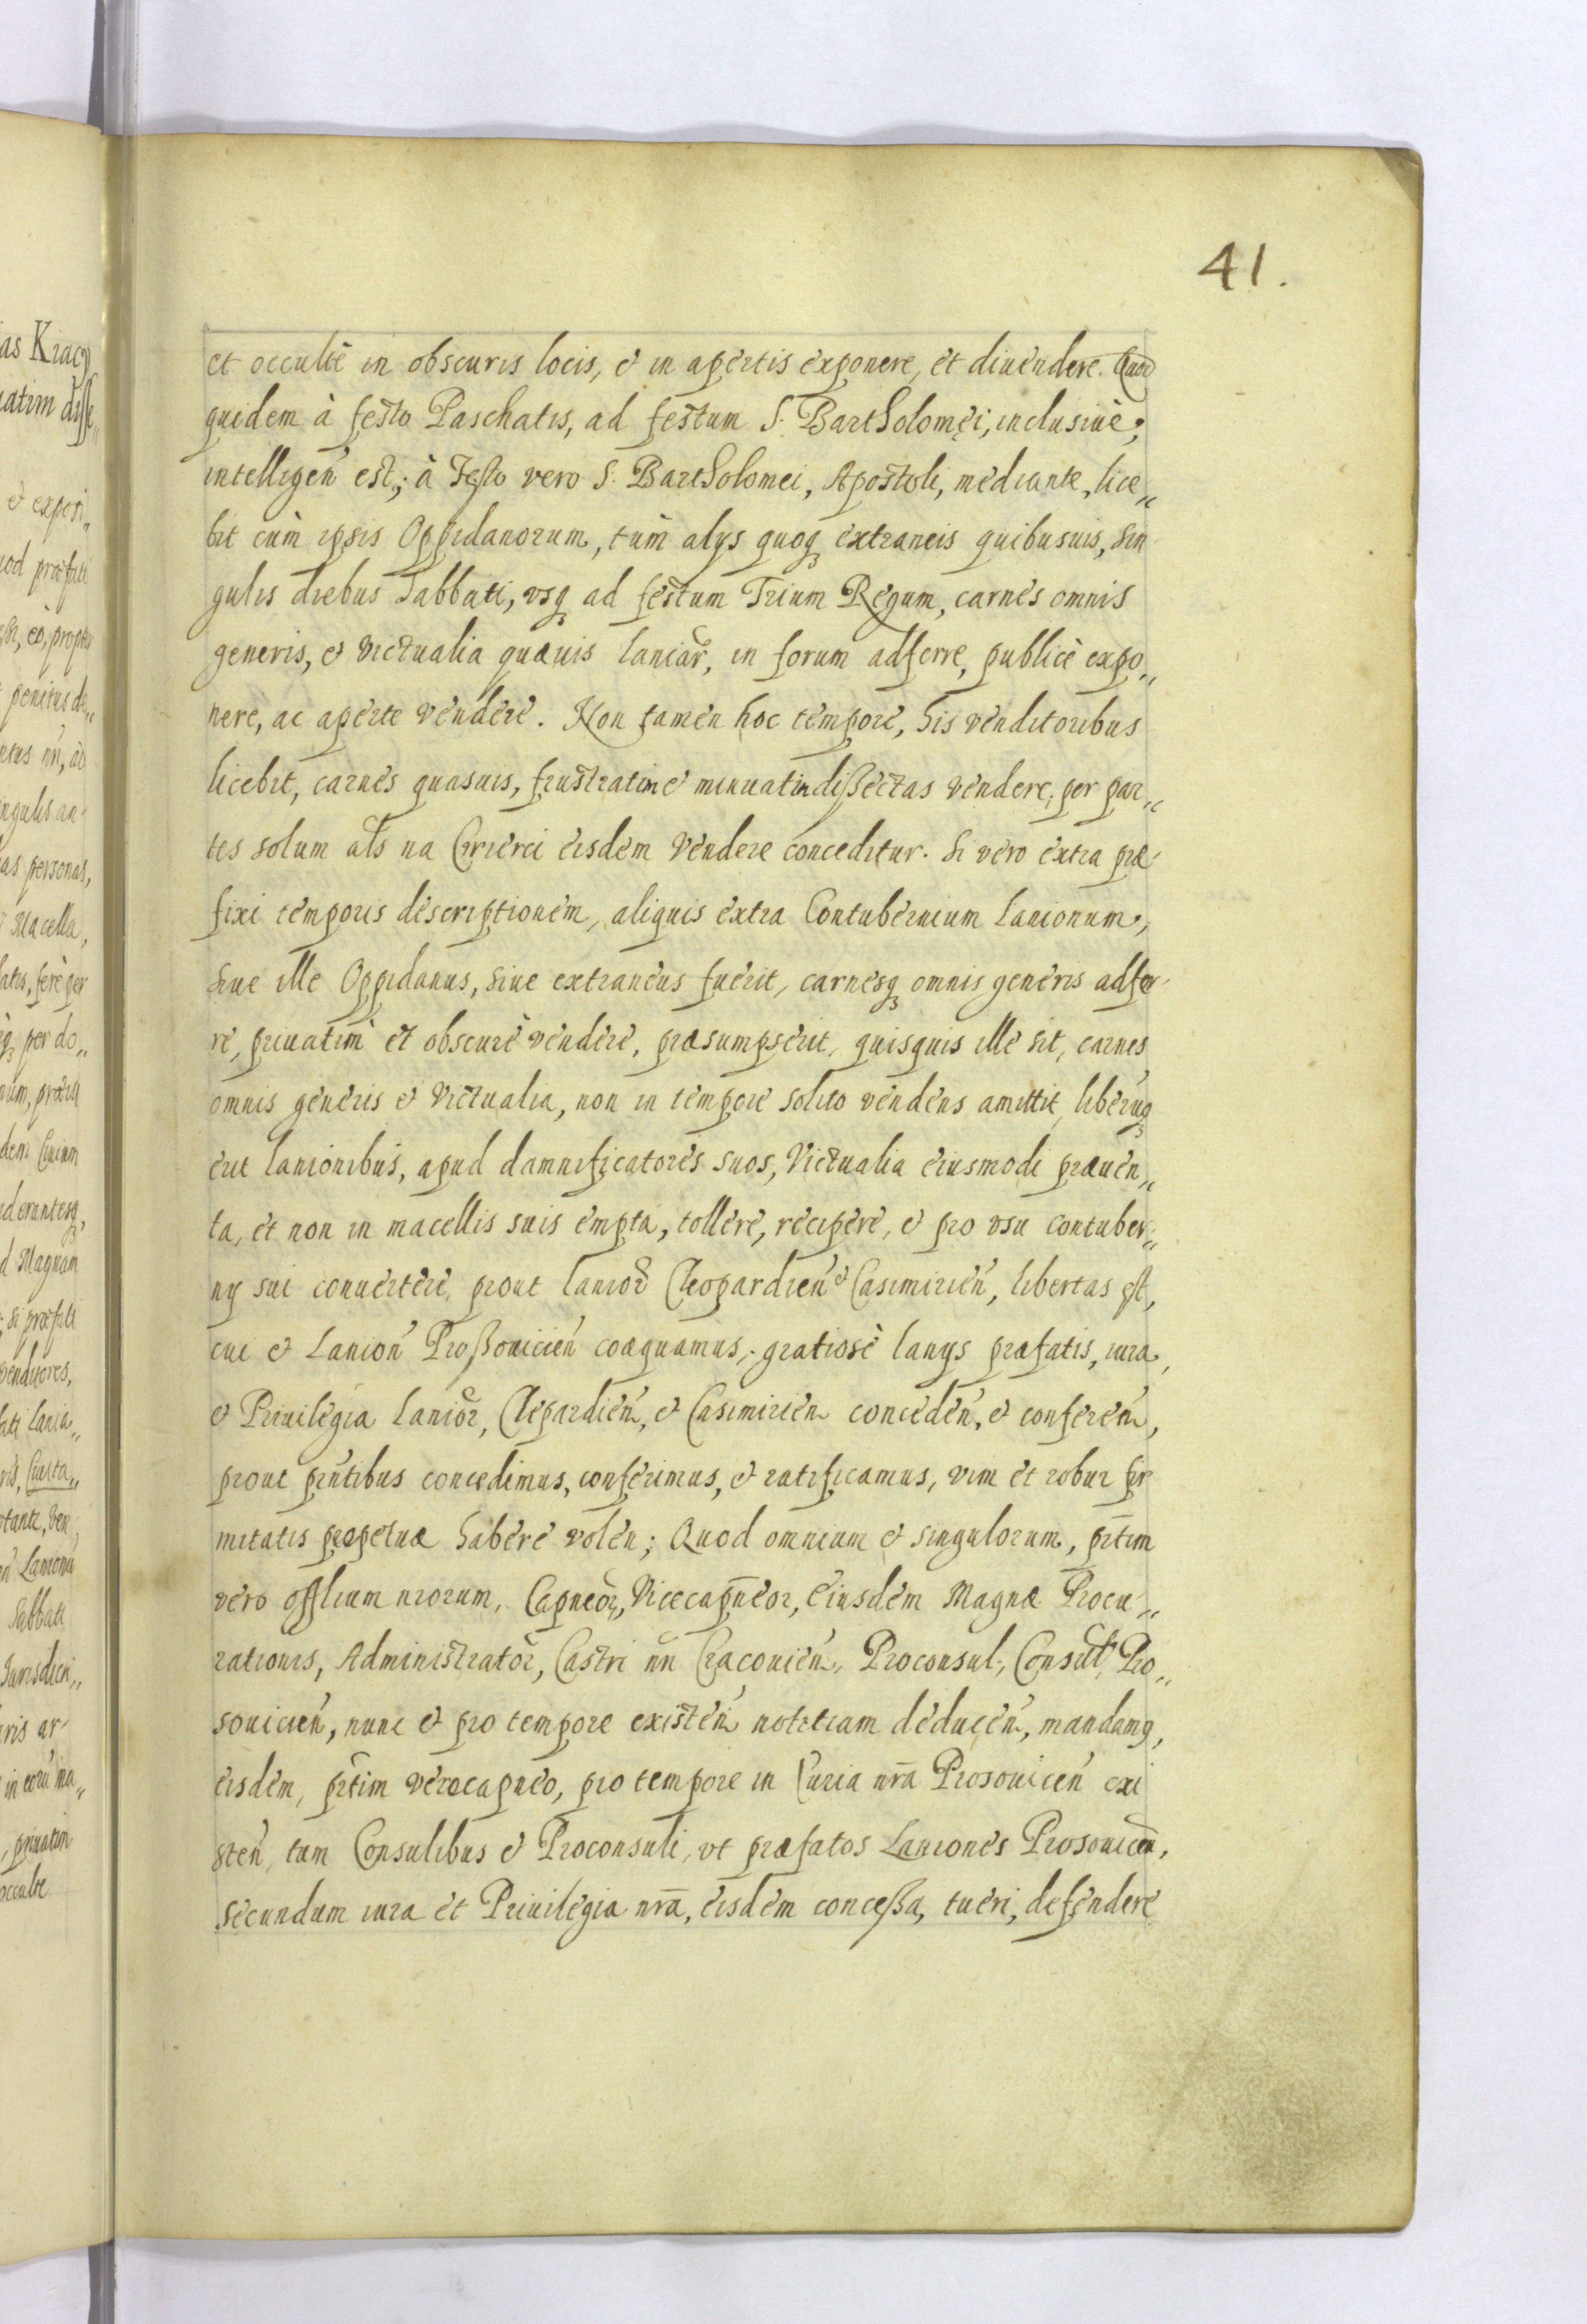 41.
et occultè in obscuris locis, & in apertis exponere, et diuendere. Quod
quidem à festo Paschatis, ad festum S. Bartholomęi, inclusiuè;
intelligen̄ est; à Festo vero S. Bartholomei, Apostoli, mediante, lice„
bit cùm ipsis Oppidanorum, tùm alys quoq̨ extraneis quibusuis, sin
gulis diebus Sabbati, vsq̨ ad festum Trium Regum, carnes omnis
generis, & victualia quæuis laniar̃, in forum adferre, publicè expo„
nere, ac aperte vendere. Non tamen hoc tempore, his venditoribus
licebit, carnes quasuis, frustratim & minuatim dißectas vendere; per par„
tes solum als na Czwierci eisdem vendere conceditur. Si vero extra præ
fixi temporis descriptionem, aliquis extra Contubernium Lanionum,
siue ille Oppidanus, siue extraneus fuerit, carnesq̨ omnis generis adfer
re, priuatim et obscurè vendere, præsumpserit, quisquis ille sit, carnes
omnis generis & victualia, non in tempore solito vendens amittit, liberuq̨
erit lanionibus, apud damnificatores suos, Victualia eiusmodi præuen„
ta, et non in macellis suis empta, tollere, recipere, & pro vsu contuber„
ny sui conuertere, prout lanior̃ Cleopardien̄ & Casimirien̄, libertas est,
cui & Lanion̄ Proßouicien̄ coæquamus, gratiosè lanys præfatis, iura,
& Priuilegia lanior̃, Clepardien̄, & Casimirien̄ conceden̄, & conferen̄,
prout pn̄tibus concedimus, conferimus, & ratificamus, vim et robur fir
mitatis ppetuæ habere volen̄; Quod omnium & singulorum, pr̄tim
vero offlium nrorum, Capneor̃, Vicecapn̄eor, Eiusdem Magnæ Procu„
rationis, Administrator̃, Castri nri Cracouien̄, Proconsul, Consul, Pro„
souicien̄, nunc & pro tempore existen̄ notitiam deducen̄, mandamq̨,
eisdem, pr̄tim verocapneo, pro tempore in Curia nr̄a Prosouicen̄ exi
sten̄, tum Consulibus & Proconsuli, vt præfatos Laniones Prosouicen̄,
secundum iura et Priuilegia nr̄a, eisdem conceßa, tueri, defendere